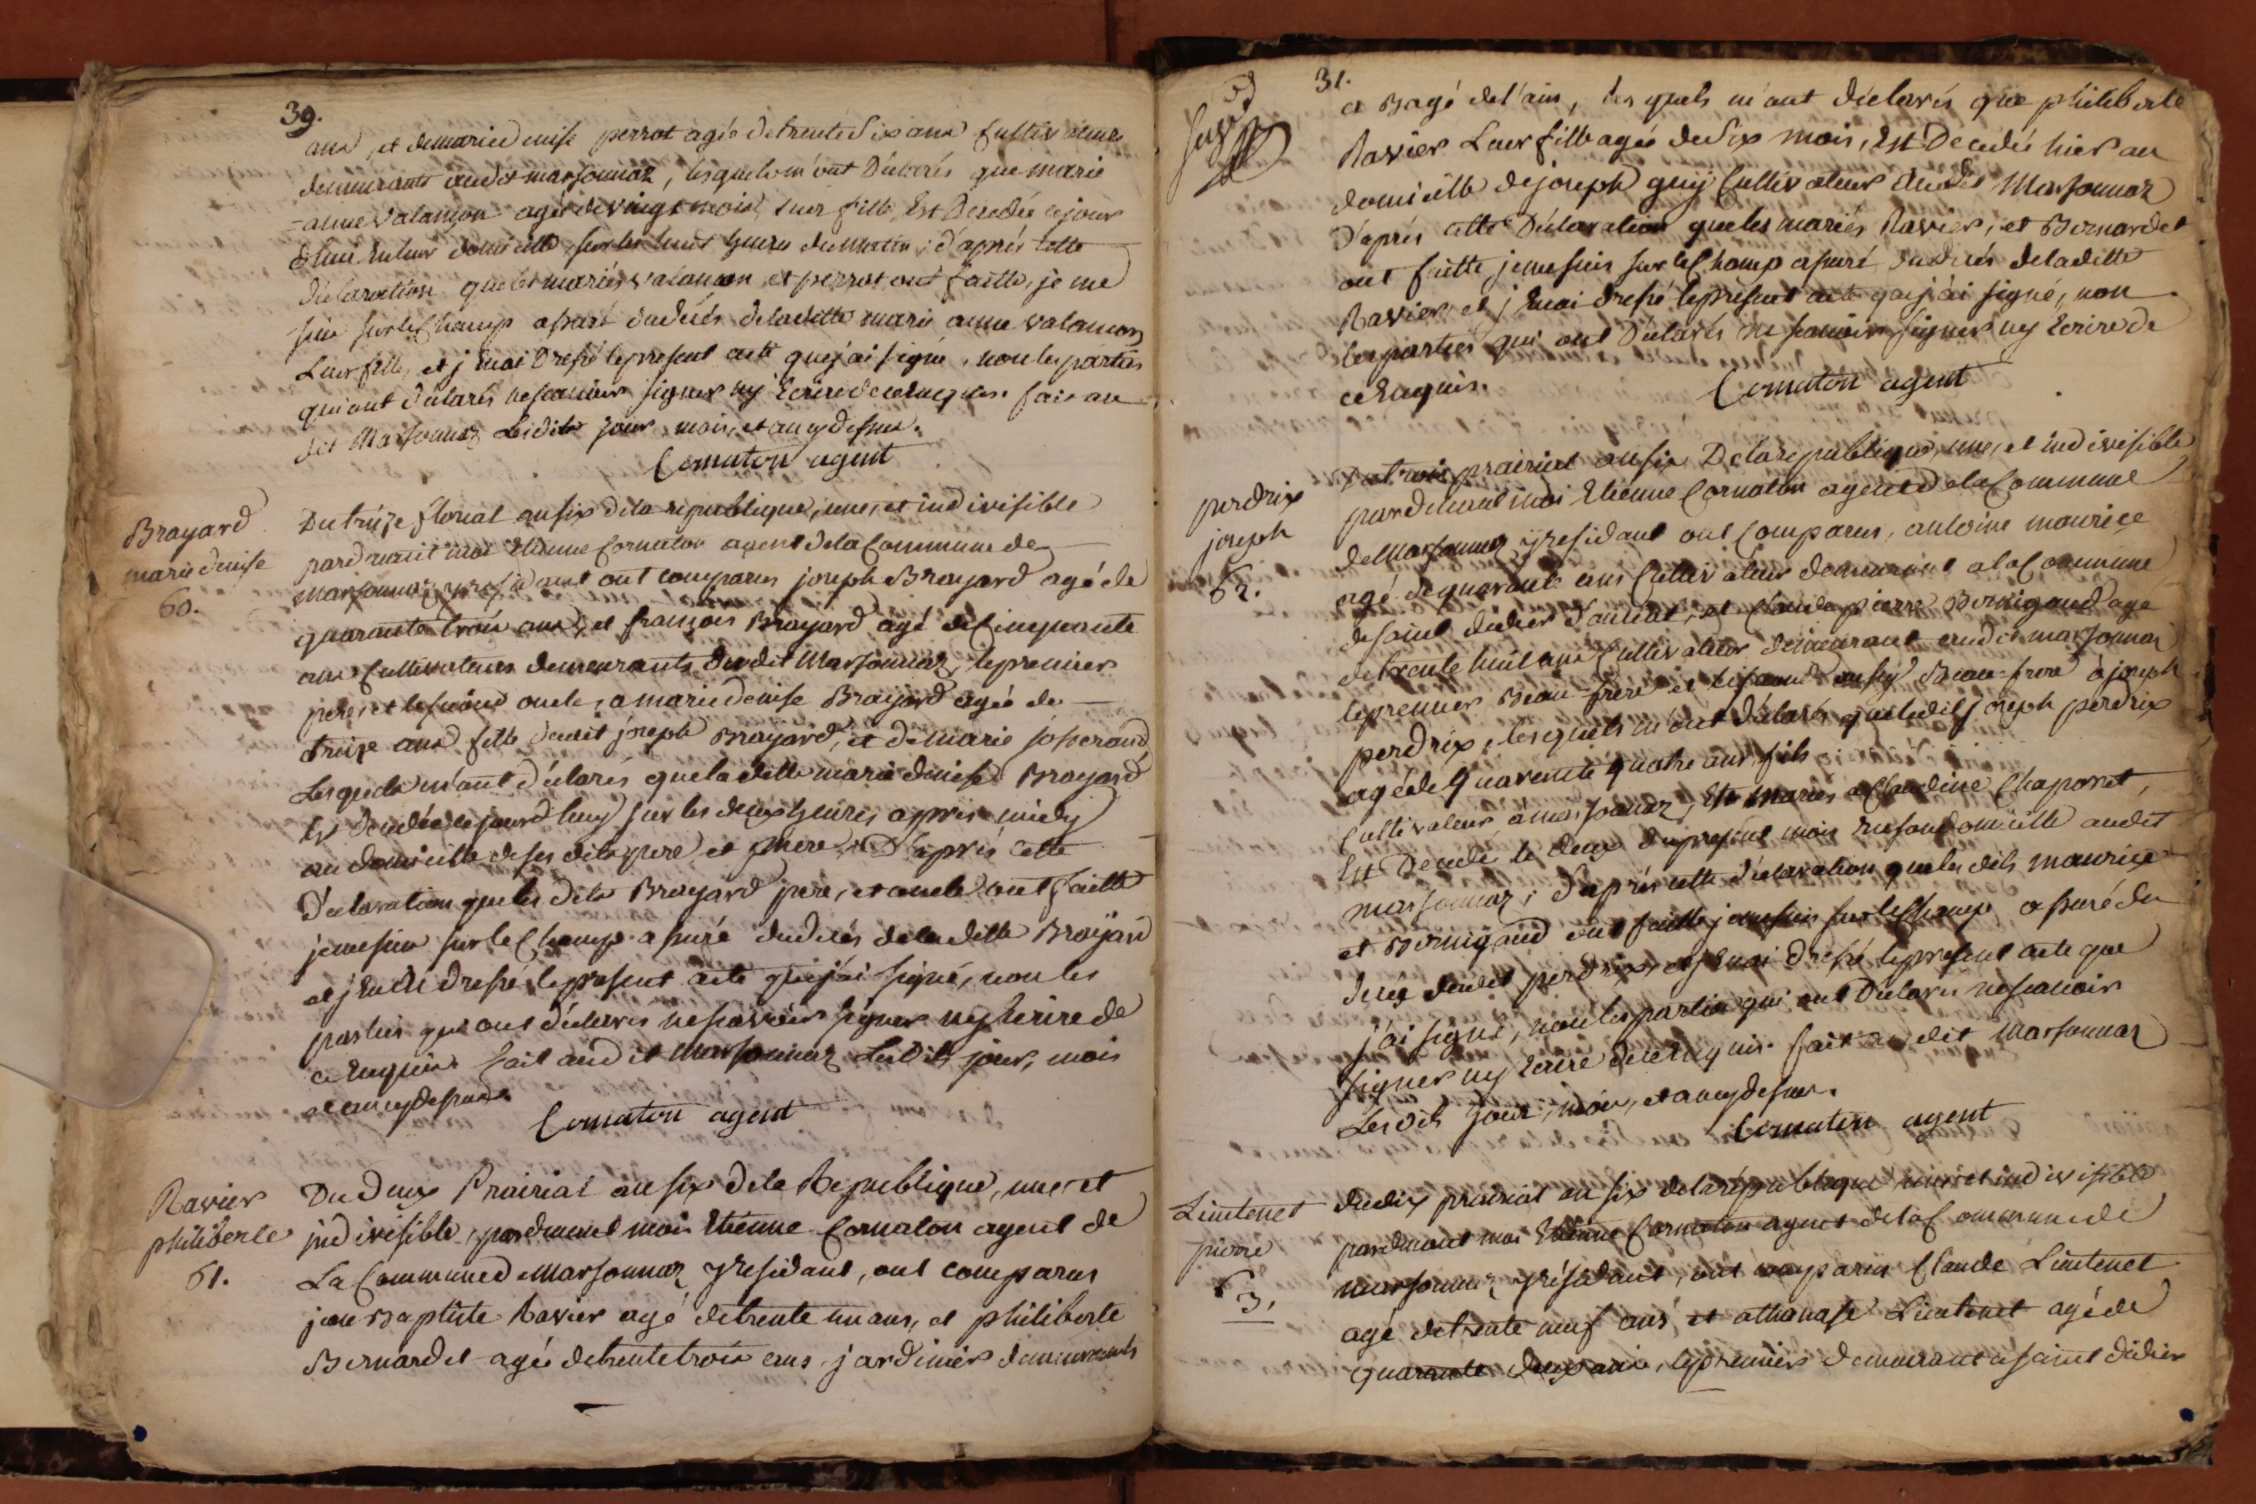 39.
ans, et de marie denise perrot agée de trente six ans cultivateurs
demeurants audit marsonnaz, lesquels m'ont déclarés que marie
anne valançon agée de vingt mois, leur fille, Est Decedée ce jour
d'hui en leur domicille, sur les huit heures du matin; d'aprés cette
déclaration que les mariés valancon et perrot ont faitte, je me
suis sur le Champ assuré du decés de laditte marie anne valancon
Leur fille, et j'Enai Dressé le present acte que j'ai signé, non les parties
qui ont déclarés ne scavoir signer ny Ecrire de ce Enquis. fait au
dit Marsonnaz Lesdits jour, mois, et an cy dessus.
Cornaton agent
Brayard
marie denise
60.
Du treize floréal an six de la republique, une, et indivisible
pardevant moi Etienne Cornaton agent de la Commune de
marsonnaz y residant ont comparus joseph Brayard agé de
quarante trois ans, et françois Brayard agé de Cinquante
ans Cultivateurs demeurants dudit Marsonnaz, le premier
pere, et le second oncle, a marie denise Brayard agée de
treize ans fille dudit joseph Brayard, et de marie josserand
Lesquels m'ont déclarés que laditte marie denise Brayard
Est decedée ce jourd'huy sur les deux heures apprès midy
au domicille de ses dits pere et mere. D'aprés cette
déclaration que les dits Brayard pere, et oncle ont faitte
je me suis sur le Champ assuré du decés de laditte Brayard
et j'En ai dressé le present acte que j'ai signé, non les
parties qui ont déclarés ne scavoir signer ny Ecrire de
ce Enquis. fait audit Marsonnaz Lesdits jour, mois
et an cy dessus.
Cornaton agent
Ravier
philiberte
61.
Du deux Prairial an six de la Republique, une, et
indivisible, pardevant moi Etienne Cornaton agent de
La Commune de Marsonnaz y residant, ont comparus
jean Baptiste Ravier agé de trente un ans, et philiberte
Bernardet agée de trente trois ans, jardinier demeurants
31.
a Bagé de l'ain, lesquels m'ont déclarés que philiberte
Ravier Leur fille agée de Six mois, Est Decedée hier au
domicille de joseph guy Cultivateur audit Marsonnaz
D'aprés cette Déclaration que les mariés Ravier, et Bernardet
ont faitte je me suis sur le Champ assuré du decés de laditte
Ravier, et j'Enai dressé le present acte que j'ai signé, non
les parties qui ont Déclarés ne scavoir signer ny Ecrire de
ce Enquis.
Cornaton agent
perdrix
joseph
62.
Du trois prairial an six De la republique, une, et indivisible
pardevant moi Etienne Cornaton agent de la Commune
de Marsonnaz y residant ont Comparus, antoine maurice
agé de quarante ans Cultivateur demeurant a la Commune
de saint didier d'aussiat, et Claude pierre Bernigaud agé
de trente huit ans Cultivateur demeurant audit marsonnaz
le premier Beau-frere et le second aussy Beau-frere à joseph
perdrix, lesquels m'ont déclarés que ledit joseph perdrix
agé de Quarente quatre ans fils
Cultivateur à marsonnaz, Est mariés a Claudine Chaponet,
Est Decedé le deux du present mois en son domicille audit
marsonnaz; d'aprés cette déclaration que les dits maurice
et Bernigaud ont faitte je me suis sur le Champ assuré du
decés dudit perdrix, et j'Enai Dressé le present acte que
j'ai signé, non les parties qui ont Déclarés ne scavoir
signer ny Ecrire de ce Enquis. fait audit Marsonnaz
Lesdits Jour, mois, et an cy dessus.
Cornaton agent
Lintenet
pierre
63.
Du dix prairial an six de la république une, et indivisible
pardevant moi Etienne Cornaton agent de la Commune de
marsonnaz y résidant, ont comparus Claude Lintenet
agé de trente neuf ans et athanase Lintenet agé de
quarante deux ans, le premier demeurant a saint didier